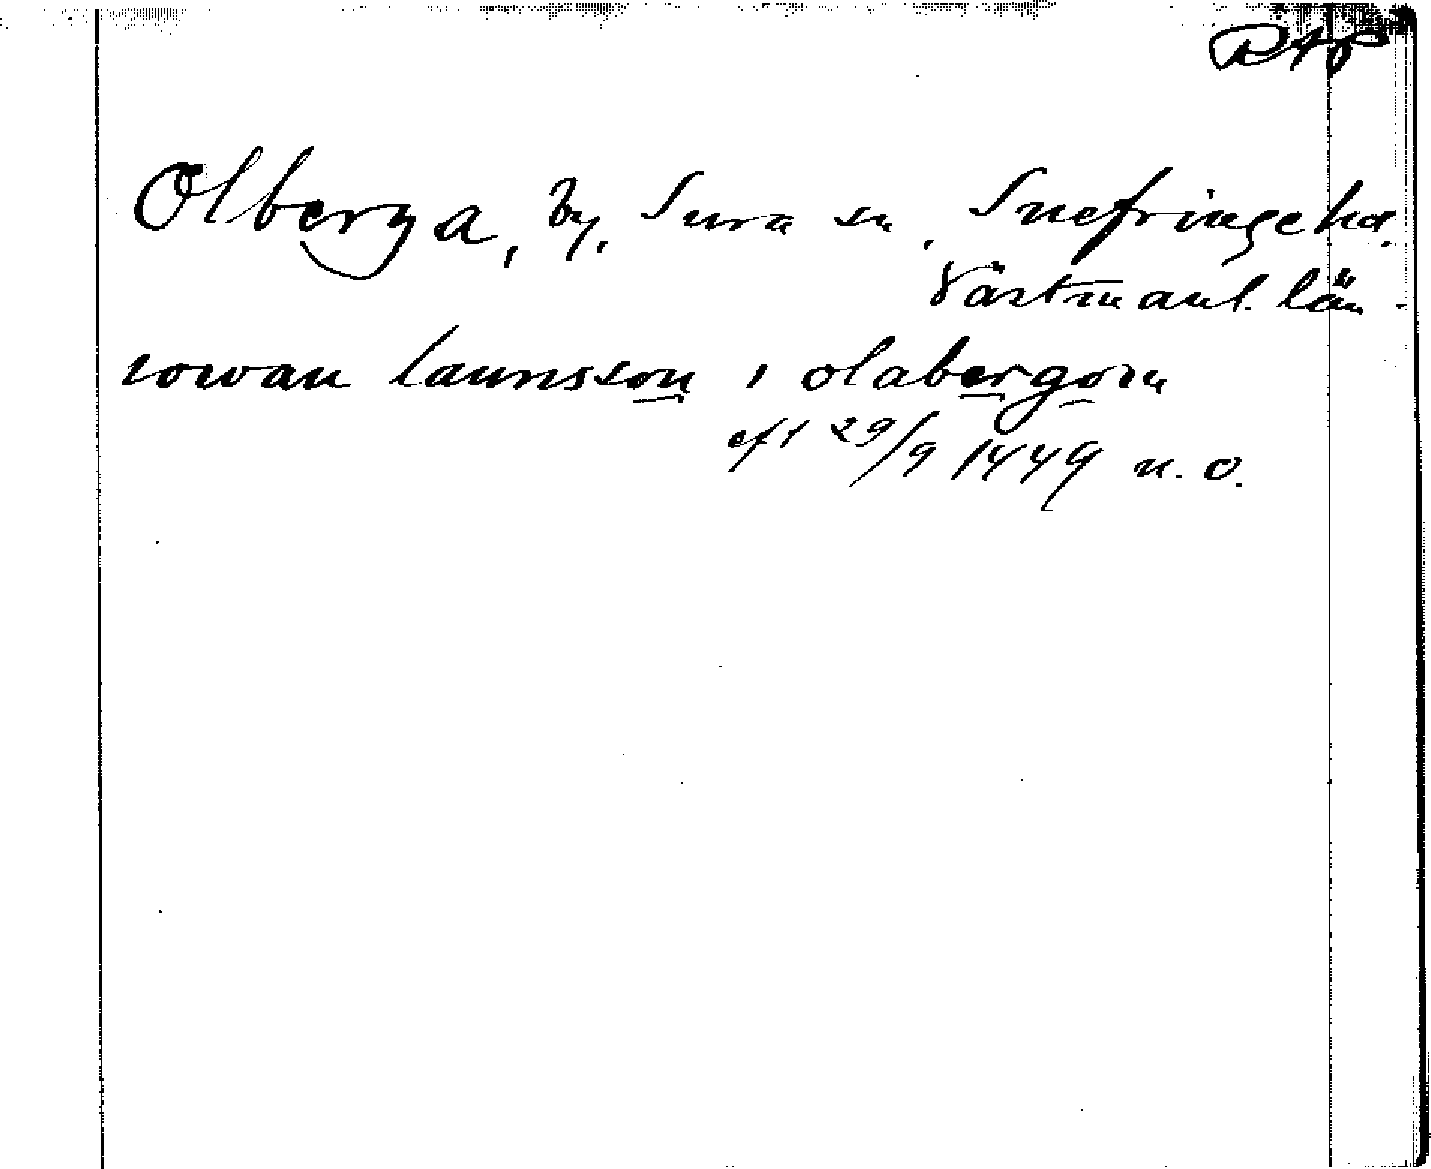 RAP
Olberga, by, Sura sn, Snefringe hd.
Västmanl. län.
rowan launsson i olabergom
eft 29/9 1449 n. o.